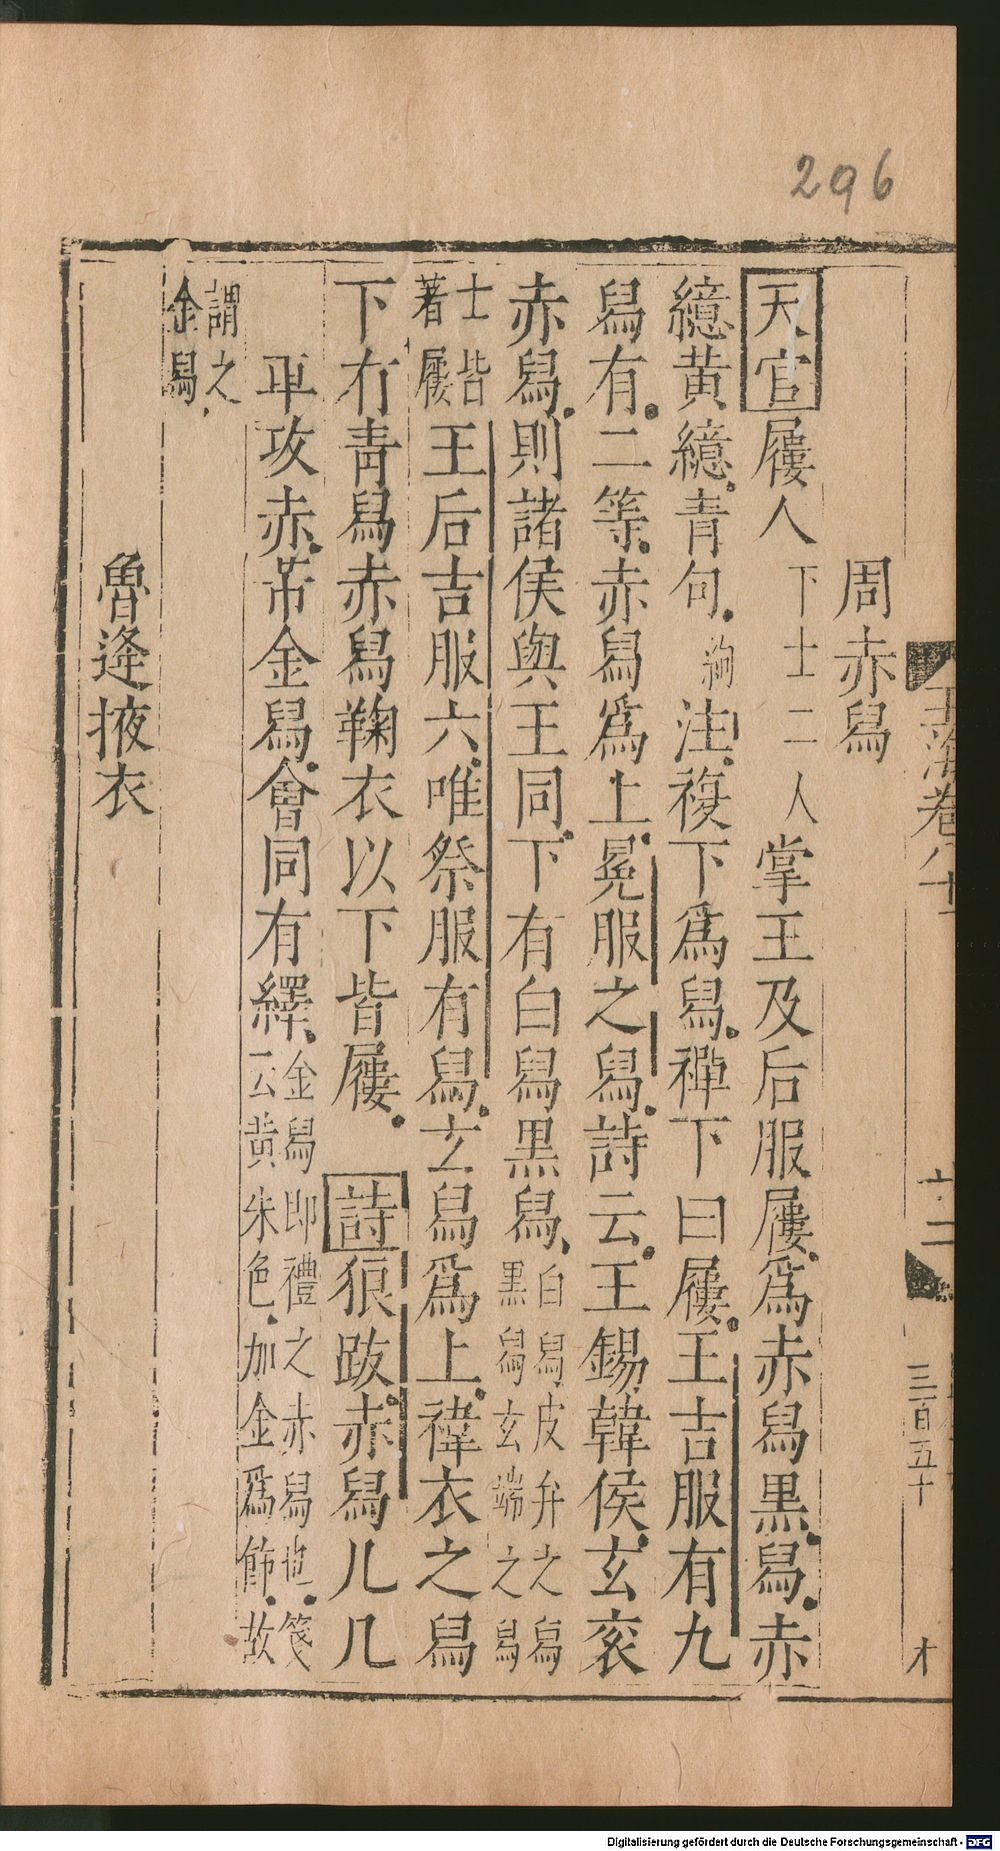 296
玉海卷八十
三百五十
才
周赤舄
天官屨人下士二人掌王及后服屨爲赤舄黒舄赤
繶黄繶青句絇注複下爲舄襌下曰屨王吉服有九
舄有二等赤舄爲上冕服之舄詩云王錫韓侯玄衮
赤舄則諸侯與王同下有白舄黒舄白舄皮弁之舄黒舄玄端之舄
士皆著屨王后吉服六唯祭服有舄玄舄爲上褘衣之舄
下有青舄赤舄鞠衣以下皆屨 詩狼跋赤舄几几
車攻赤芾金舄會同有繹金舄即禮之赤舄也箋云黄朱色加金爲飾故
謂之金舄
魯逢掖衣
Digitalisierung gefördert durch die Deutsche Forschungsgemeinschaft - DFG